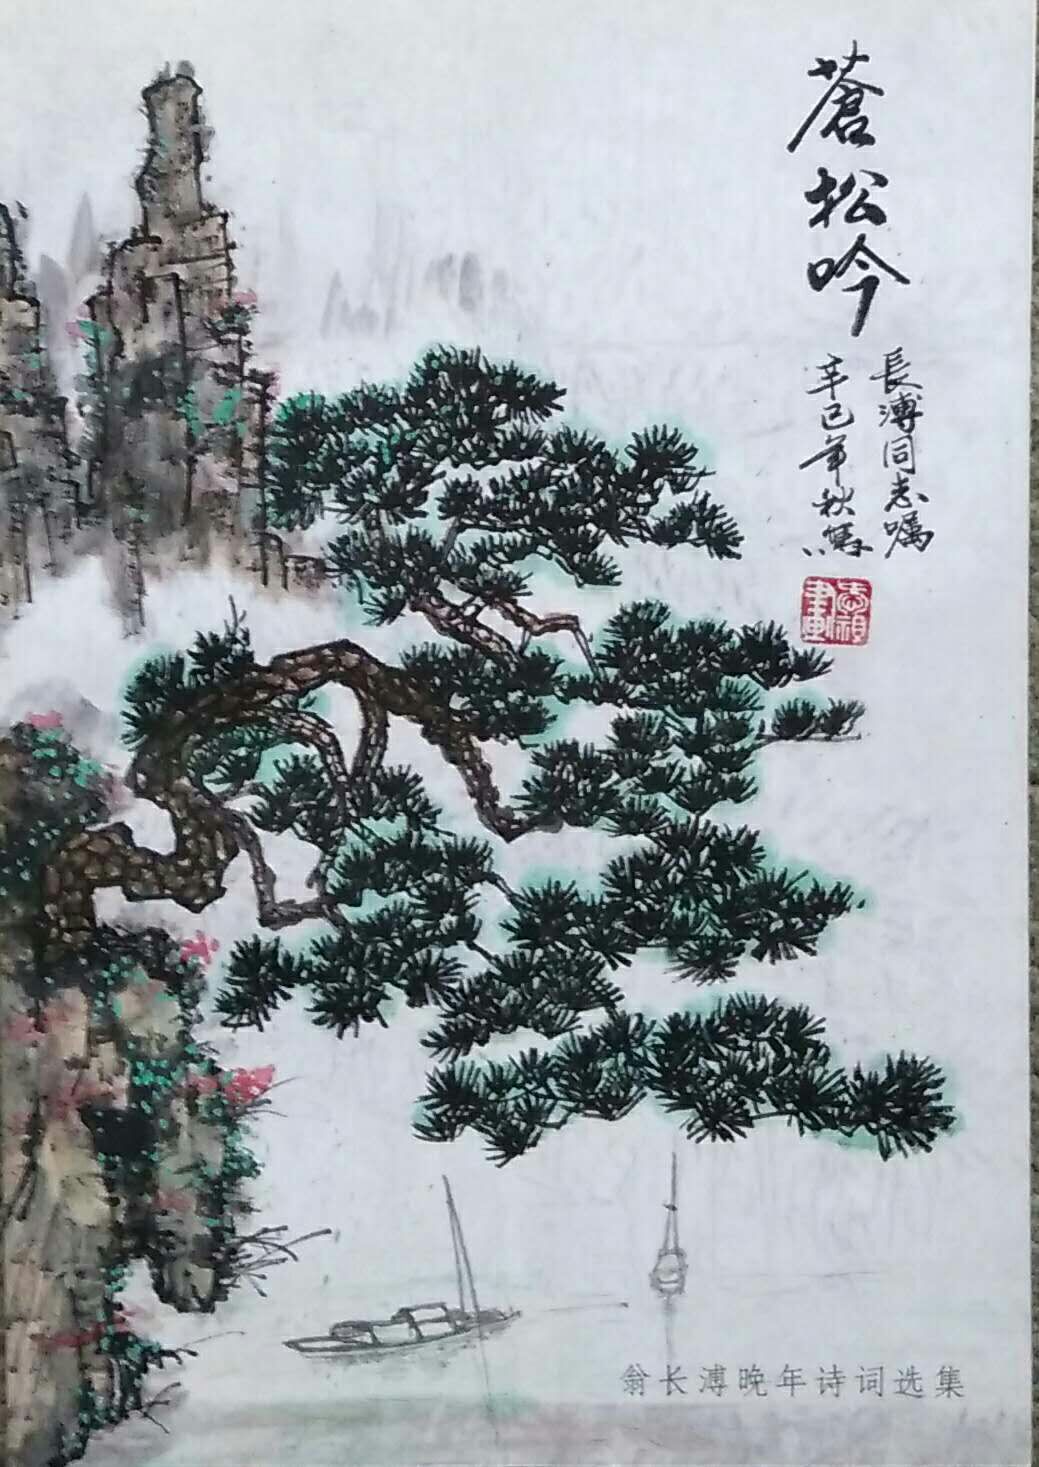 蒼松吟
長溥同志嘱
辛巳年秋写
翁长溥晚年诗词选集